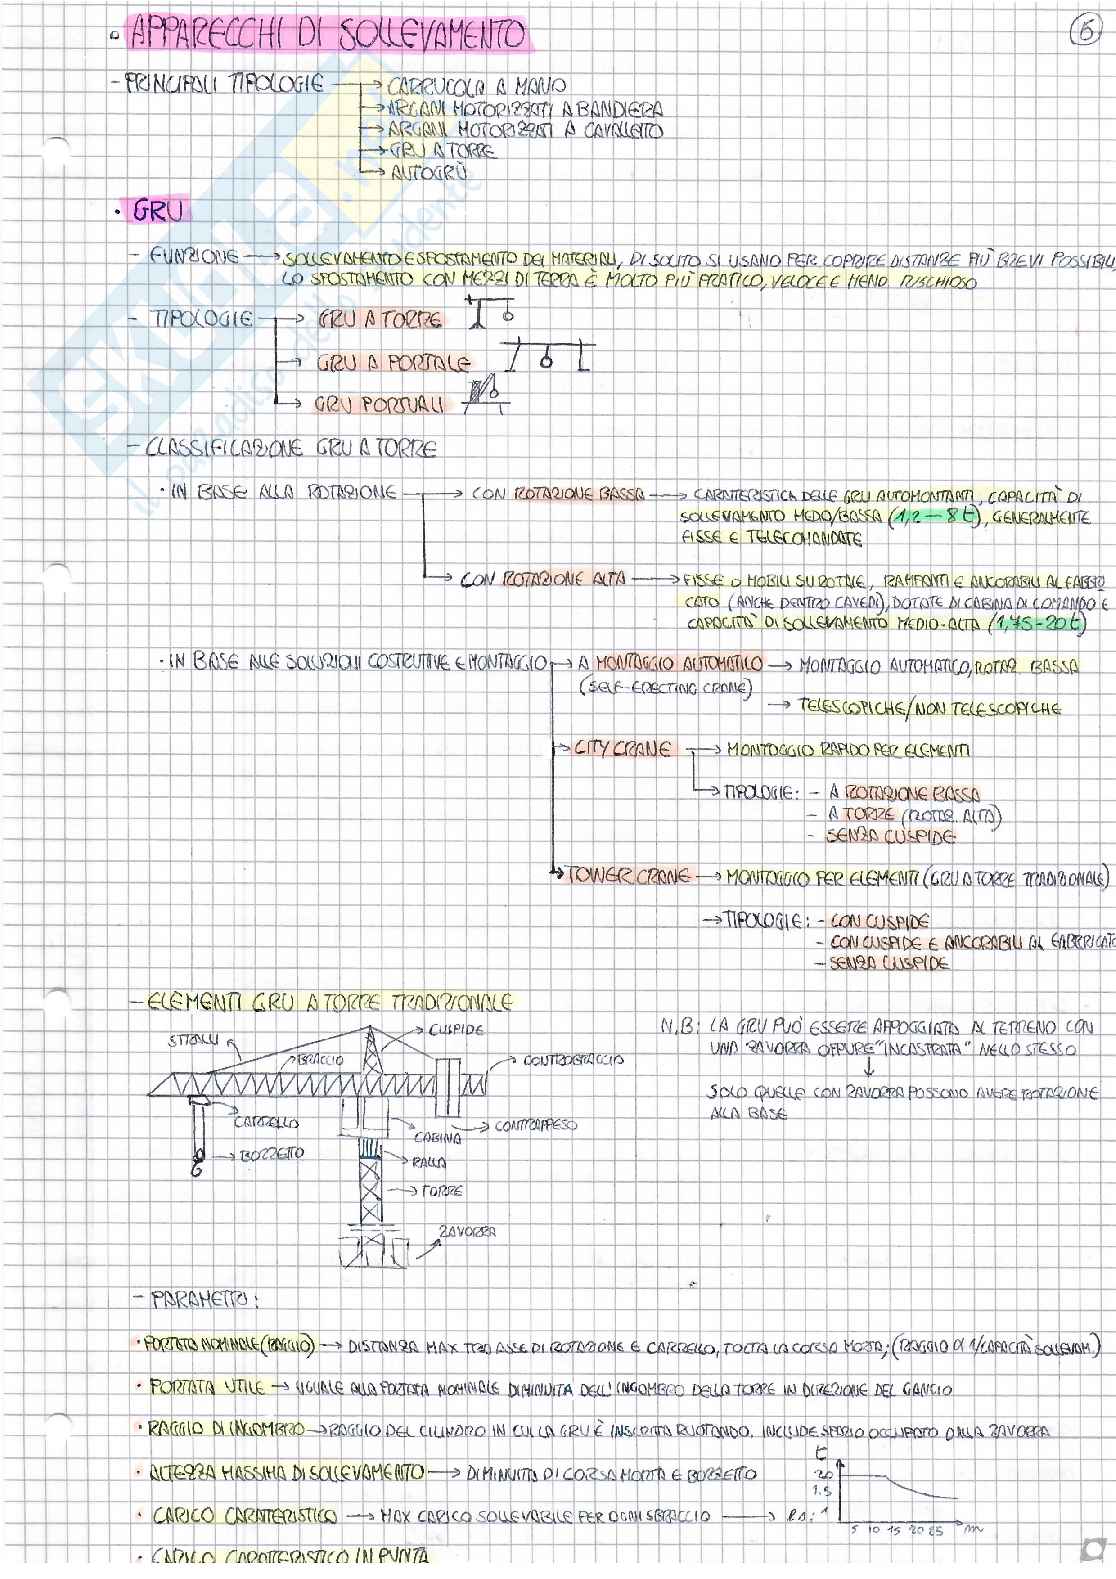 6
APPARECCHI DI SOLLEVAMENTO
- PRINCIPALI TIPOLOGIE → CARRUCOLA A MANO
→ ARGANI MOTORIZZATI A BANDIERA
→ ARGANI MOTORIZZATI A CAVALLETTO
→ GRU A TORRE
→ AUTOGRÙ
· GRU
- FUNZIONE → SOLLEVAMENTO E SPOSTAMENTO DEI MATERIALI, DI SOLITO SI USANO PER COPRIRE DISTANZE PIÙ BREVI POSSIBILI
LO SPOSTAMENTO CON MEZZI DI TERRA È MOLTO PIÙ PRATICO, VELOCE E MENO RISCHIOSO
- TIPOLOGIE → GRU A TORRE
→ GRU A PORTALE
→ GRU PORTUALI
- CLASSIFICAZIONE GRU A TORRE
· IN BASE ALLA ROTAZIONE → CON ROTAZIONE BASSA → CARATTERISTICA DELLE GRU AUTOMONTANTI, CAPACITÀ DI
SOLLEVAMENTO MEDIO/BASSA (1,2 - 8 t), GENERALMENTE
FISSE E TELECOMANDATE
→ CON ROTAZIONE ALTA → FISSE O MOBILI SU ROTAIE, RAMPANTI E ANCORABILI AL FABBRI
CATO (ANCHE DENTRO CAVEDI), DOTATE DI CABINA DI COMANDO E
CAPACITÀ DI SOLLEVAMENTO MEDIO-ALTA (1,75-20 t)
· IN BASE ALLE SOLUZIONI COSTRUTTIVE E MONTAGGIO → A MONTAGGIO AUTOMATICO → MONTAGGIO AUTOMATICO, ROTAZ. BASSA
(SELF-ERECTING CRANE)
→ TELESCOPICHE/NON TELESCOPICHE
→ CITY CRANE → MONTAGGIO RAPIDO PER ELEMENTI
→ TIPOLOGIE: - A ROTAZIONE BASSA
- A TORRE (ROTAZ. ALTA)
- SENZA CUSPIDE
→ TOWER CRANE → MONTAGGIO PER ELEMENTI (GRU A TORRE TRADIZIONALE)
→ TIPOLOGIE: - CON CUSPIDE
- CON CUSPIDE E ANCORABILI AL FABBRICATO
- SENZA CUSPIDE
- ELEMENTI GRU A TORRE TRADIZIONALE
STRALLI
CUSPIDE
BRACCIO
CONTROBRACCIO
CARRELLO
CABINA
CONTRAPPESO
BOZZELLO
RALLA
TORRE
ZAVORRA
N.B: LA GRU PUÒ ESSERE APPOGGIATA AL TERRENO CON
UNA ZAVORRA OPPURE "INCASTRATA" NELLO STESSO
SOLO QUELLE CON ZAVORRA POSSONO AVERE ROTAZIONE
ALLA BASE
- PARAMETRO:
· PORTATA NOMINALE (RAGGIO) → DISTANZA MAX TRA ASSE DI ROTAZIONE E CARRELLO, TOLTA LA CORSA MORTA; (RAGGIO DI 1/CAPACITÀ SOLLEVAM.)
· PORTATA UTILE → UGUALE ALLA PORTATA NOMINALE DIMINUITA DELL'INGOMBRO DELLA TORRE IN DIREZIONE DEL GANCIO
· RAGGIO DI INGOMBRO → RAGGIO DEL CILINDRO IN CUI LA GRU È INSCRITTA RUOTANDO. INCLUDE SPAZIO OCCUPATO DALLA ZAVORRA
· ALTEZZA MASSIMA DI SOLLEVAMENTO → DIMINUITA DI CORSA MORTA E BOZZELLO
· CARICO CARATTERISTICO → MAX CARICO SOLLEVABILE PER OGNI SBRACCIO → Es:
t
20
1.5
1
5 10 15 20 25 m
· CARICO CARATTERISTICO IN PUNTA
SKUOLA.net
il paradiso dello studente